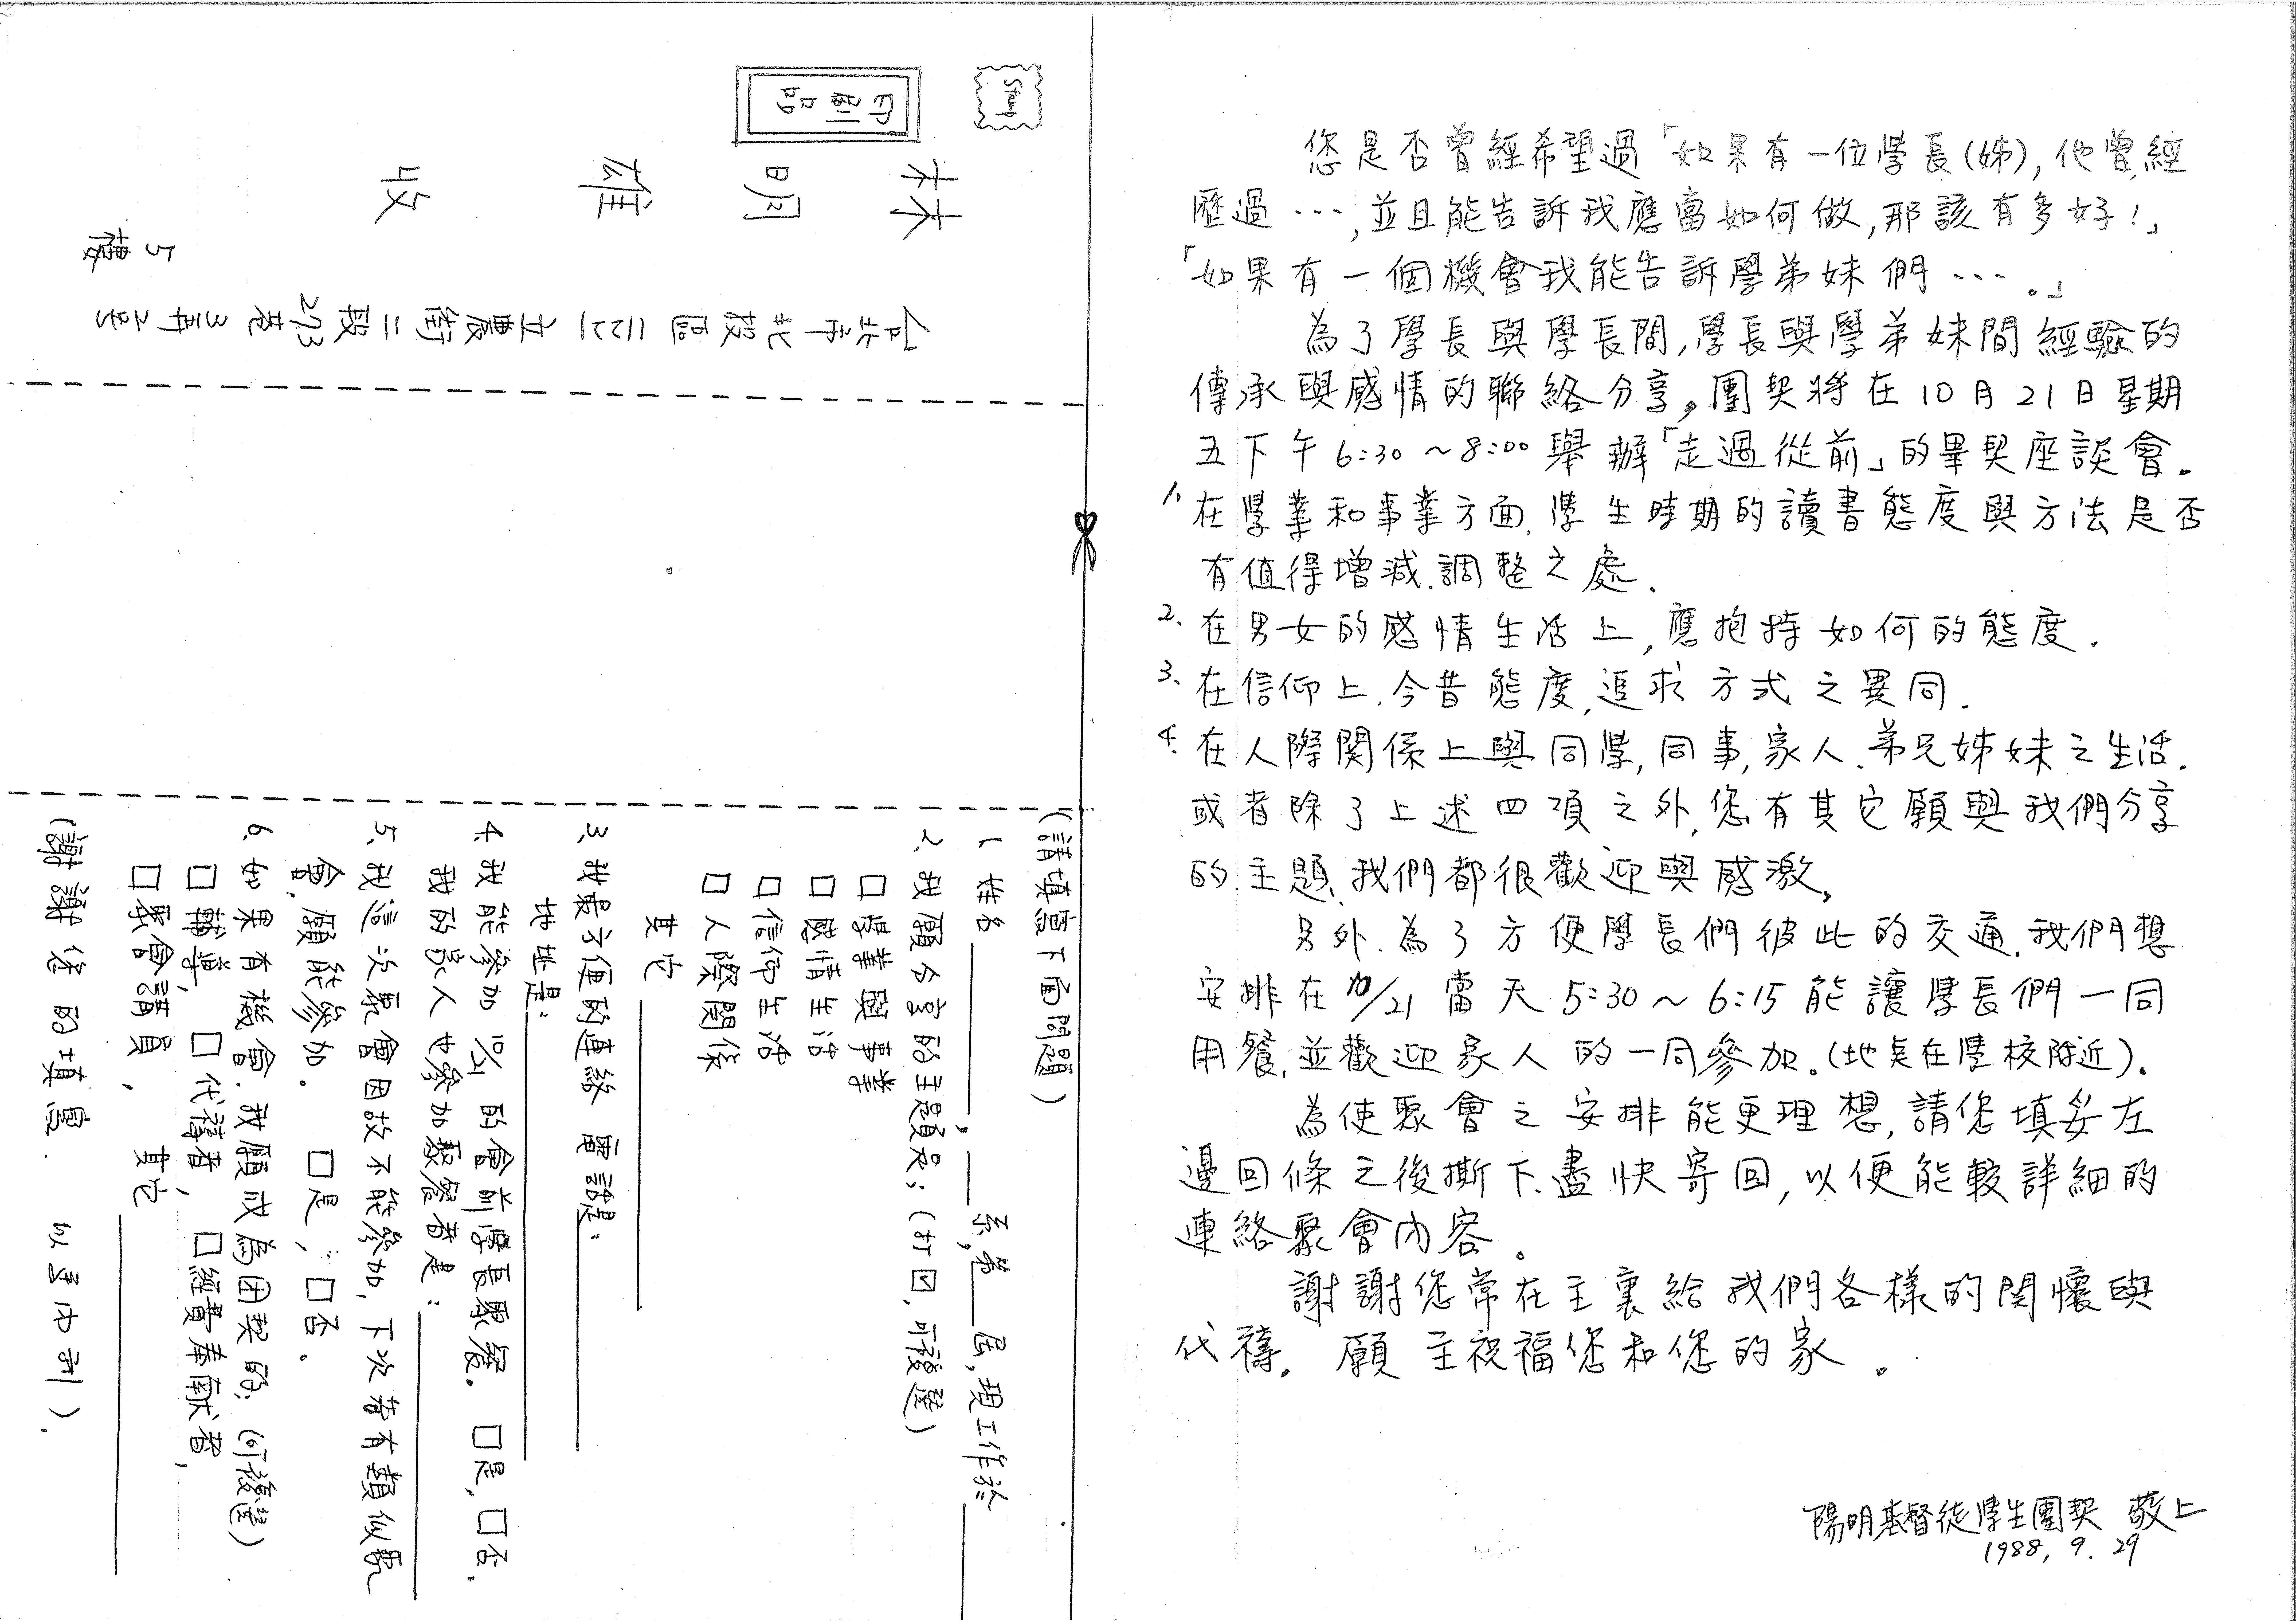 您是否曾經希望過「如果有一位學長(姊),他曾經
歷過…,並且能告訴我應當如何做,那該有多好!」
「如果有一個機會我能告訴學弟妹們…。」
為了學長與學長間,學長與學弟妹間經驗的
傳承與感情的聯絡分享,團契將在10月21日星期
五下午6:30~8:00舉辦「走過從前」的畢契座談會。
1、在學業和事業方面、學生時期的讀書態度與方法是否
有值得增減、調整之處.
2、在男女的感情生活上,應抱持如何的態度.
3、在信仰上、今昔態度、追求方式之異同.
4、在人際関係上與同學,同事,家人、弟兄姊妹之生活.
或者除了上述四項之外、您有其它願與我們分享
的主題、我們都很歡迎與感激。
另外、為了方便學長們彼此的交通、我們想
安排在10/21當天5:30~6:15能讓學長們一同
用餐,並歡迎家人的一同參加。(地點在學校附近)。
為使聚會之安排能更理想,請您填妥左
邊回條之後撕下、盡快寄回,以便能較詳細的
連絡聚會內容。
謝謝您常在主裏給我們各樣的関懷與
代禱。願主祝福您和您的家。
陽明基督徒學生團契 敬上
1988. 9. 29
Stamp
印刷品
林明雄 收
台北市北投區112立農街二段273巷3弄2号
5樓
(請填寫下面問題)
1、姓名 , 系,第 屆,現工作於
2、我願分享的主題是;(打☑,可複選)
□學業與事業
□感情生活
□信仰生活
□人際関係
其它
3、我最方便的連絡 電話是:
地址是:
4、我能參加10/21的會前學長聚餐。 □是,□否.
我的家人也參加聚餐者是:
5、我這次聚會因故不能參加,下次若有類似聚
會,願能參加。 □是,□否。
6、如果有機會、我願成為团契的;(可複選)
□輔導, □代禱者, □經費奉献者,
□聚會講員, 其它
(謝謝您的填寫. 以馬內利).